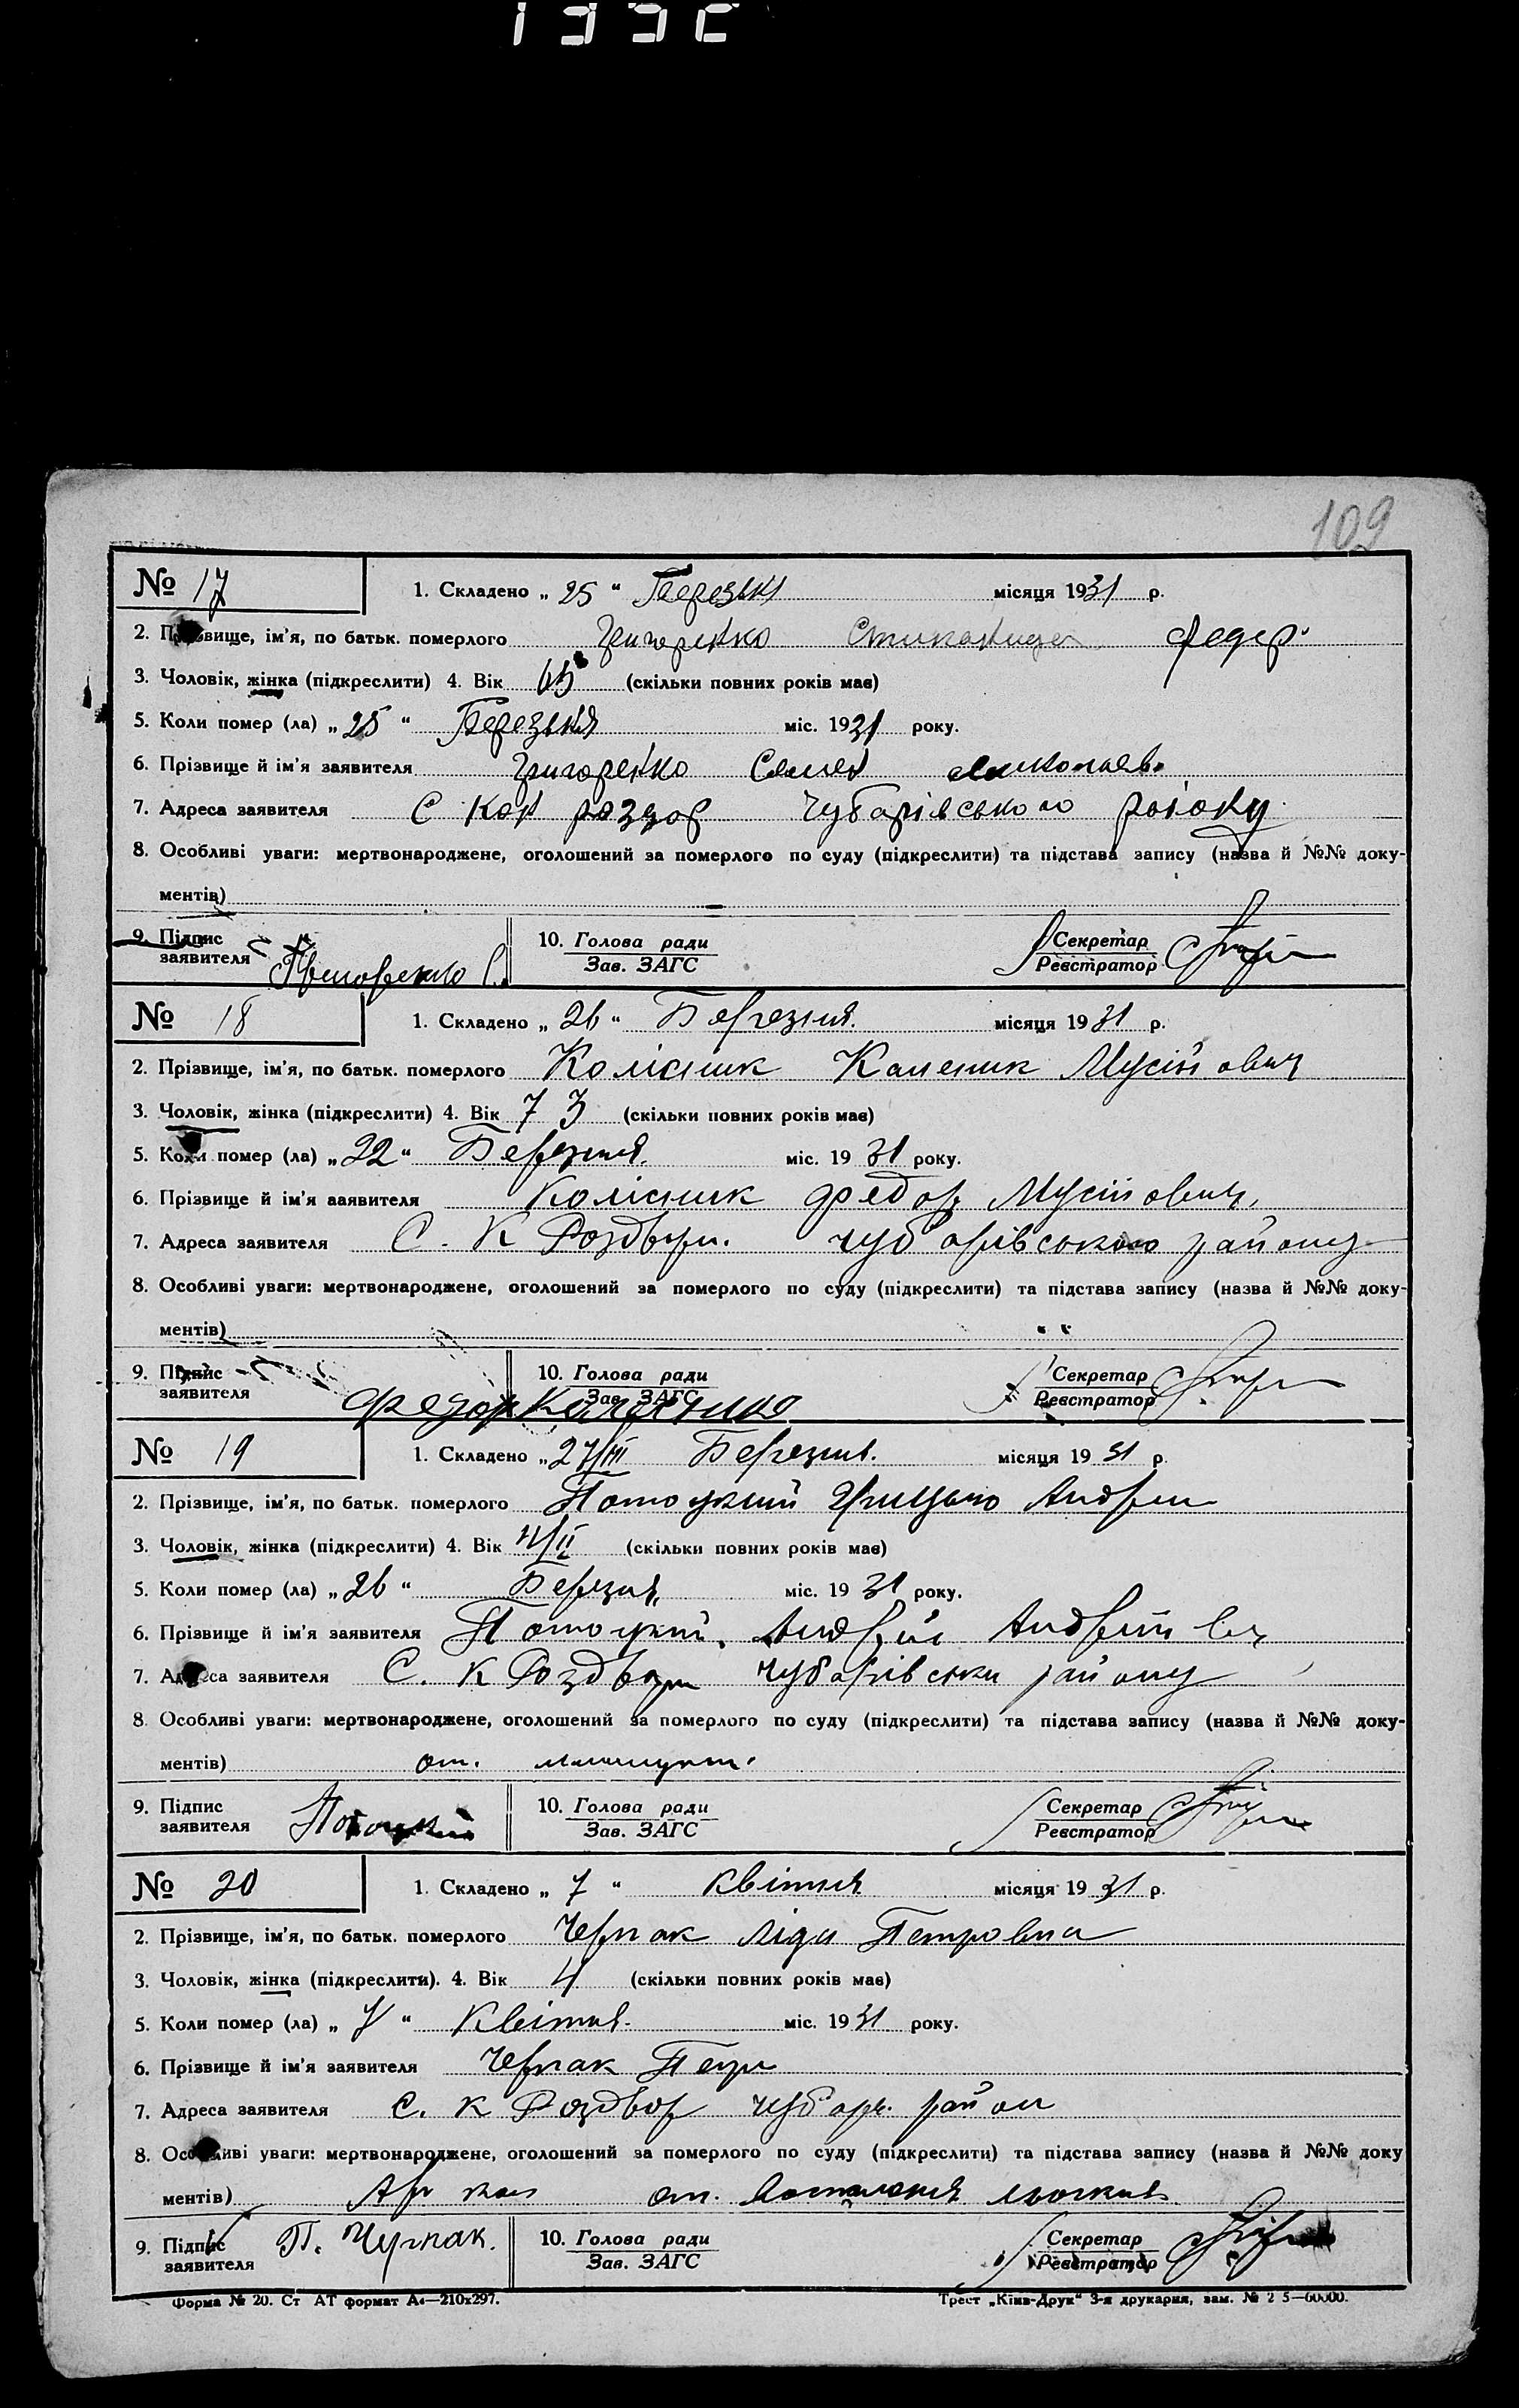 109
№ 17 1. Складено „ 25 “ Березня місяця 1931 р.
2. Прізвище, ім'я, по батьк. померлого Григоренко Федор
3. Чоловік, жінка (підкреслити) 4. Вік (скільки повних років має)
5. Коли помер (ла) „ 25 “ Березня міс. 1931 року.
6. Прізвище й ім'я заявителя Григоренко Семен Миколаев.
7. Адреса заявителя С Кам роздор Чубарівського району
8. Особливі уваги: мертвонароджене, оголошений за померлого по суду (підкреслити) та підстава запису (назва й №№ доку-
ментів) —
9. Підпис 10. Голова ради Секретар
заявителя Григоренко С. Зав. ЗАГС Реєстратор
№ 18 1. Складено „ 26 “ Березня. місяця 1931 р.
2. Прізвище, ім'я, по батьк. померлого Колісник Каленик Мусійович
3. Чоловік, жінка (підкреслити) 4. Вік 73 (скільки повних років має)
5. Коли помер (ла) „ 22 “ Березня. міс. 1931 року.
6. Прізвище й ім'я заявителя Колісник Федор Мусійович,
7. Адреса заявителя С. К Роздори. Чубарівського району
8. Особливі уваги: мертвонароджене, оголошений за померлого по суду (підкреслити) та підстава запису (назва й №№ доку-
ментів) " "
9. Підпис 10. Голова ради Секретар
заявителя Федор Зав. ЗАГС Реєстратор
№ 19 1. Складено „ 27/III Березня. місяця 1931 р.
2. Прізвище, ім'я, по батьк. померлого Потоцкий Грицько Андрій
3. Чоловік, жінка (підкреслити) 4. Вік (скільки повних років має)
5. Коли помер (ла) „ 26 “ Березня, міс. 1931 року.
6. Прізвище й ім'я заявителя Потоцкий. Андрій Андрійович
7. Адреса заявителя С. К Роздори Чубарівськи району
8. Особливі уваги: мертвонароджене, оголошений за померлого по суду (підкреслити) та підстава запису (назва й №№ доку-
ментів) от.
9. Підпис 10. Голова ради Секретар
заявителя Потоцкий Зав. ЗАГС Реєстратор
№ 20 1. Складено „ 7 “ Квітня місяця 1931 р.
2. Прізвище, ім'я, по батьк. померлого Черпак Ліда Петровна
3. Чоловік, жінка (підкреслити). 4. Вік 4 (скільки повних років має)
5. Коли помер (ла) „ 7 “ Квітня. міс. 1931 року.
6. Прізвище й ім'я заявителя Черпак Петро
7. Адреса заявителя С. К Роздор Чубарь. район
8. Особливі уваги: мертвонароджене, оголошений за померлого по суду (підкреслити) та підстава запису (назва й №№ доку
ментів) от. Воспаления
9. Підпис П. Черпак. 10. Голова ради Секретар
заявителя Зав. ЗАГС Реєстратор
Форма № 20. Ст АТ формат А4—210х297. Трест „Київ-Друк“ 3-я друкарня, зам. № 2 5—60000.